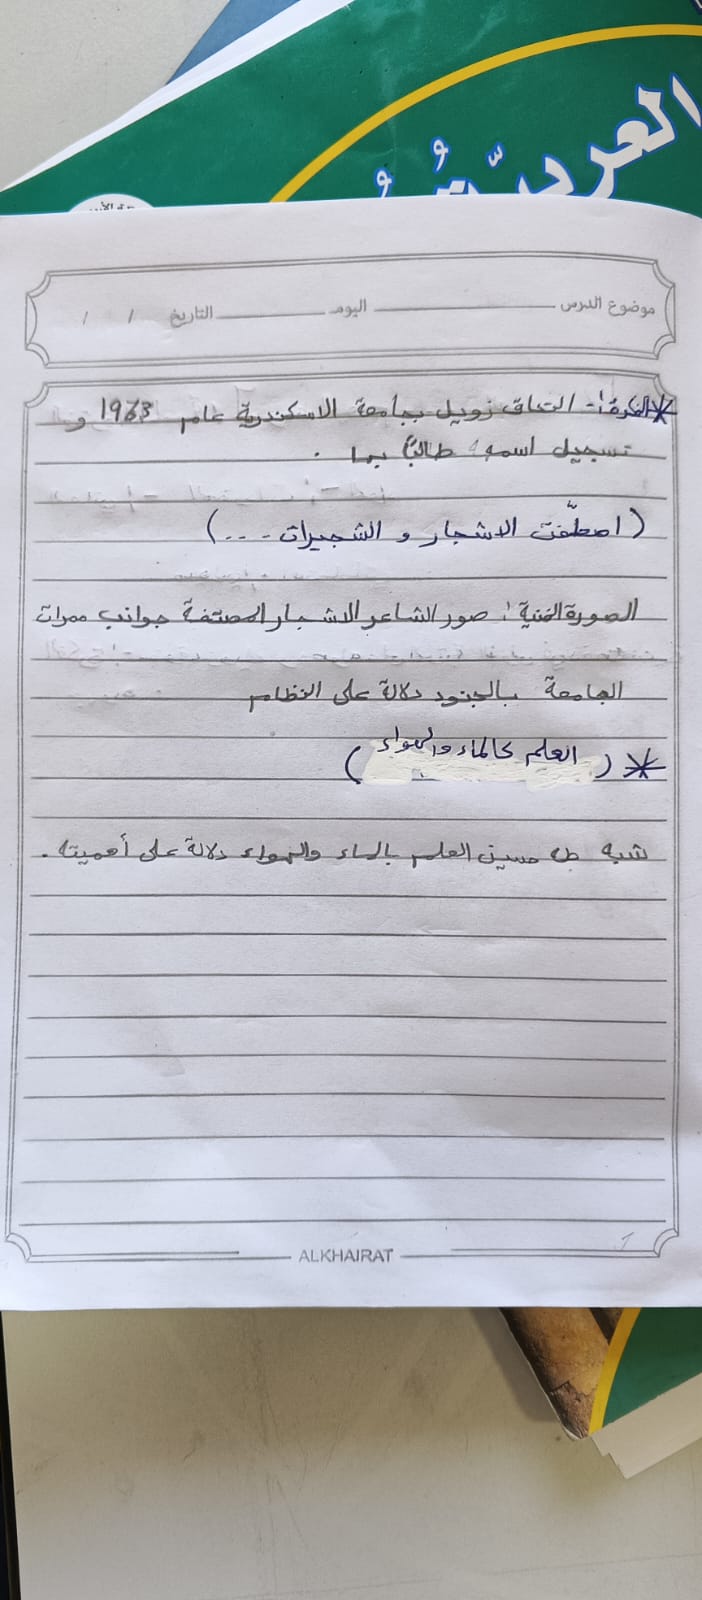 العربيّة
موضوع الدرس اليوم التاريخ / /
*الفكرة:- التحاق زويل بجامعة الاسكندرية عام 1963 و
تسجيل اسمه طالبًا بها .
(اصطفّت الاشجار و الشجيرات ...)
الصورة الفنية: صور الشاعر الاشجار المصتفة جوانب ممرات
الجامعة بالجنود دلالة على النظام
* (العلم كالماء والهواء)
شبه طه حسين العلم بالماء والهواء دلالة على أهميته .
ALKHAIRAT